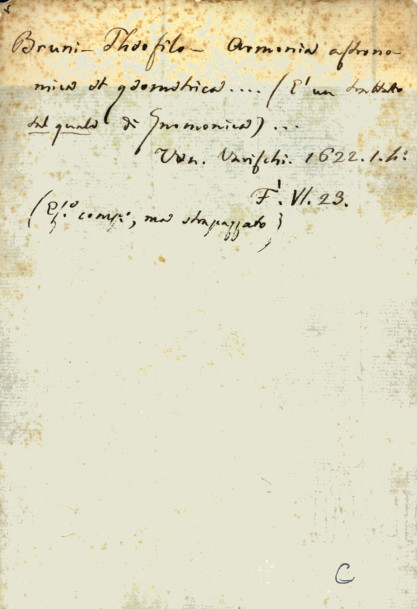 Bruni - Theofilo - Armonia astrono-
mica et geometrica .... (E' un trattato
sul quale di Gnomonica) ...
Ven. Varischi. 1622. 1. h:
F. VI. 23.
(Es.º comp.º, ma strapazzato)
C